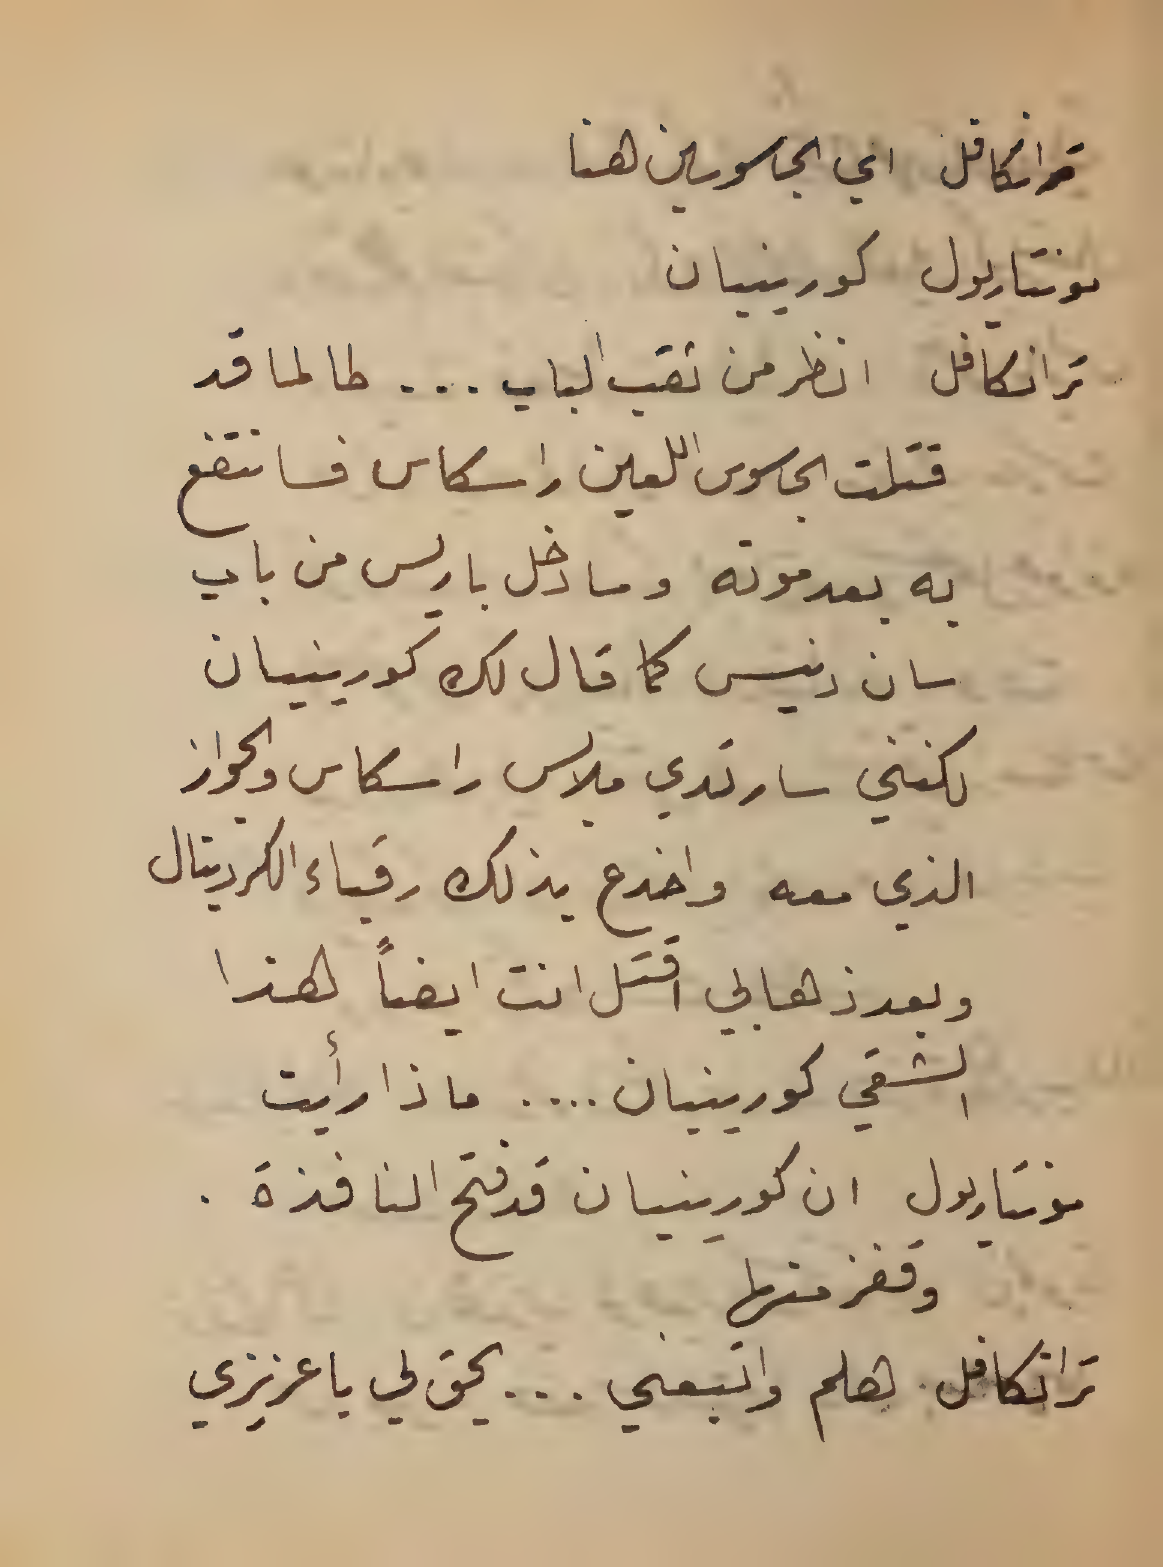 ترانكافل اي الجاسوسين هنا
مونتاريول كورينيان
ترانكافل انظر من ثقب الباب .... طالما قد
قتلت الجاسوس اللعين راسكاس فسانتفع
به بعد موته وسادخل باريس من باب
سان دنيس كما قال لك كورينيان
لكنني سارتدي ملابس راسكاس والجواز
الذي معه واخدع بذلك رقباء الكردينال
وبعد ذهابي اقتل انت ايضاً هذا
الشقي كورينيان .... ماذا رأيت
مونتاريول ان كورينيان قد فتح النافذة .
وقفز منها
ترانكافل هلم واتبعني .... يحق لي يا عزيزي